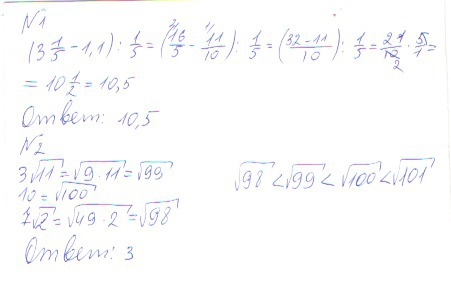 N1
(3 1/5 - 1,1) : 1/5 = (16/5 - 11/10) : 1/5 = (32-11/10) : 1/5 = 21/10 2 · 5/1 =
= 10 1/2 = 10,5
Ответ: 10,5
N2
3√11 = √9·11 = √99
10 = √100
7√2 = √49·2 = √98
√98 < √99 < √100 < √101
Ответ: 3